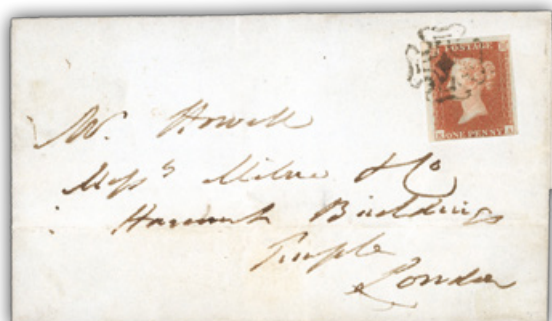 POSTAGE
ONE PENNY
Mr. Howell
Messrs Milne & Co
Buildings
Temple
London